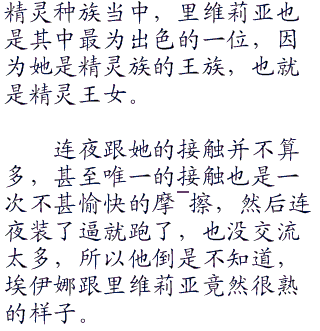 精灵种族当中，里维莉亚也
是其中最为出色的一位，因
为她是精灵族的王族，也就
是精灵王女。
连夜跟她的接触并不算
多，甚至唯一的接触也是一
次不甚愉快的摩¯擦，然后连
夜装了逼就跑了，也没交流
太多，所以他倒是不知道，
埃伊娜跟里维莉亚竟然很熟
的样子。